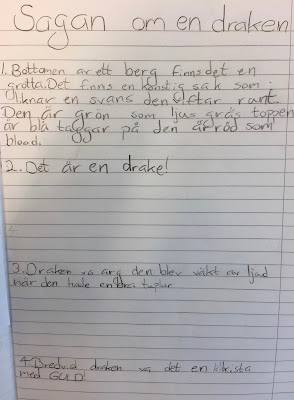 Sagan om en draken
1. Bottomen av ett berg finns det en
grotta. Det finns en konstig sak som
liknar en svans den viftar runt.
Den är grön som ljus gräs toppen
är blå taggar på den är röd som
blood.
2. Det är en drake!
3. Draken va arg den blev väkt av ljud
när den hade en bra tuplur
4. Bredvid draken va det en kista
med GULD!